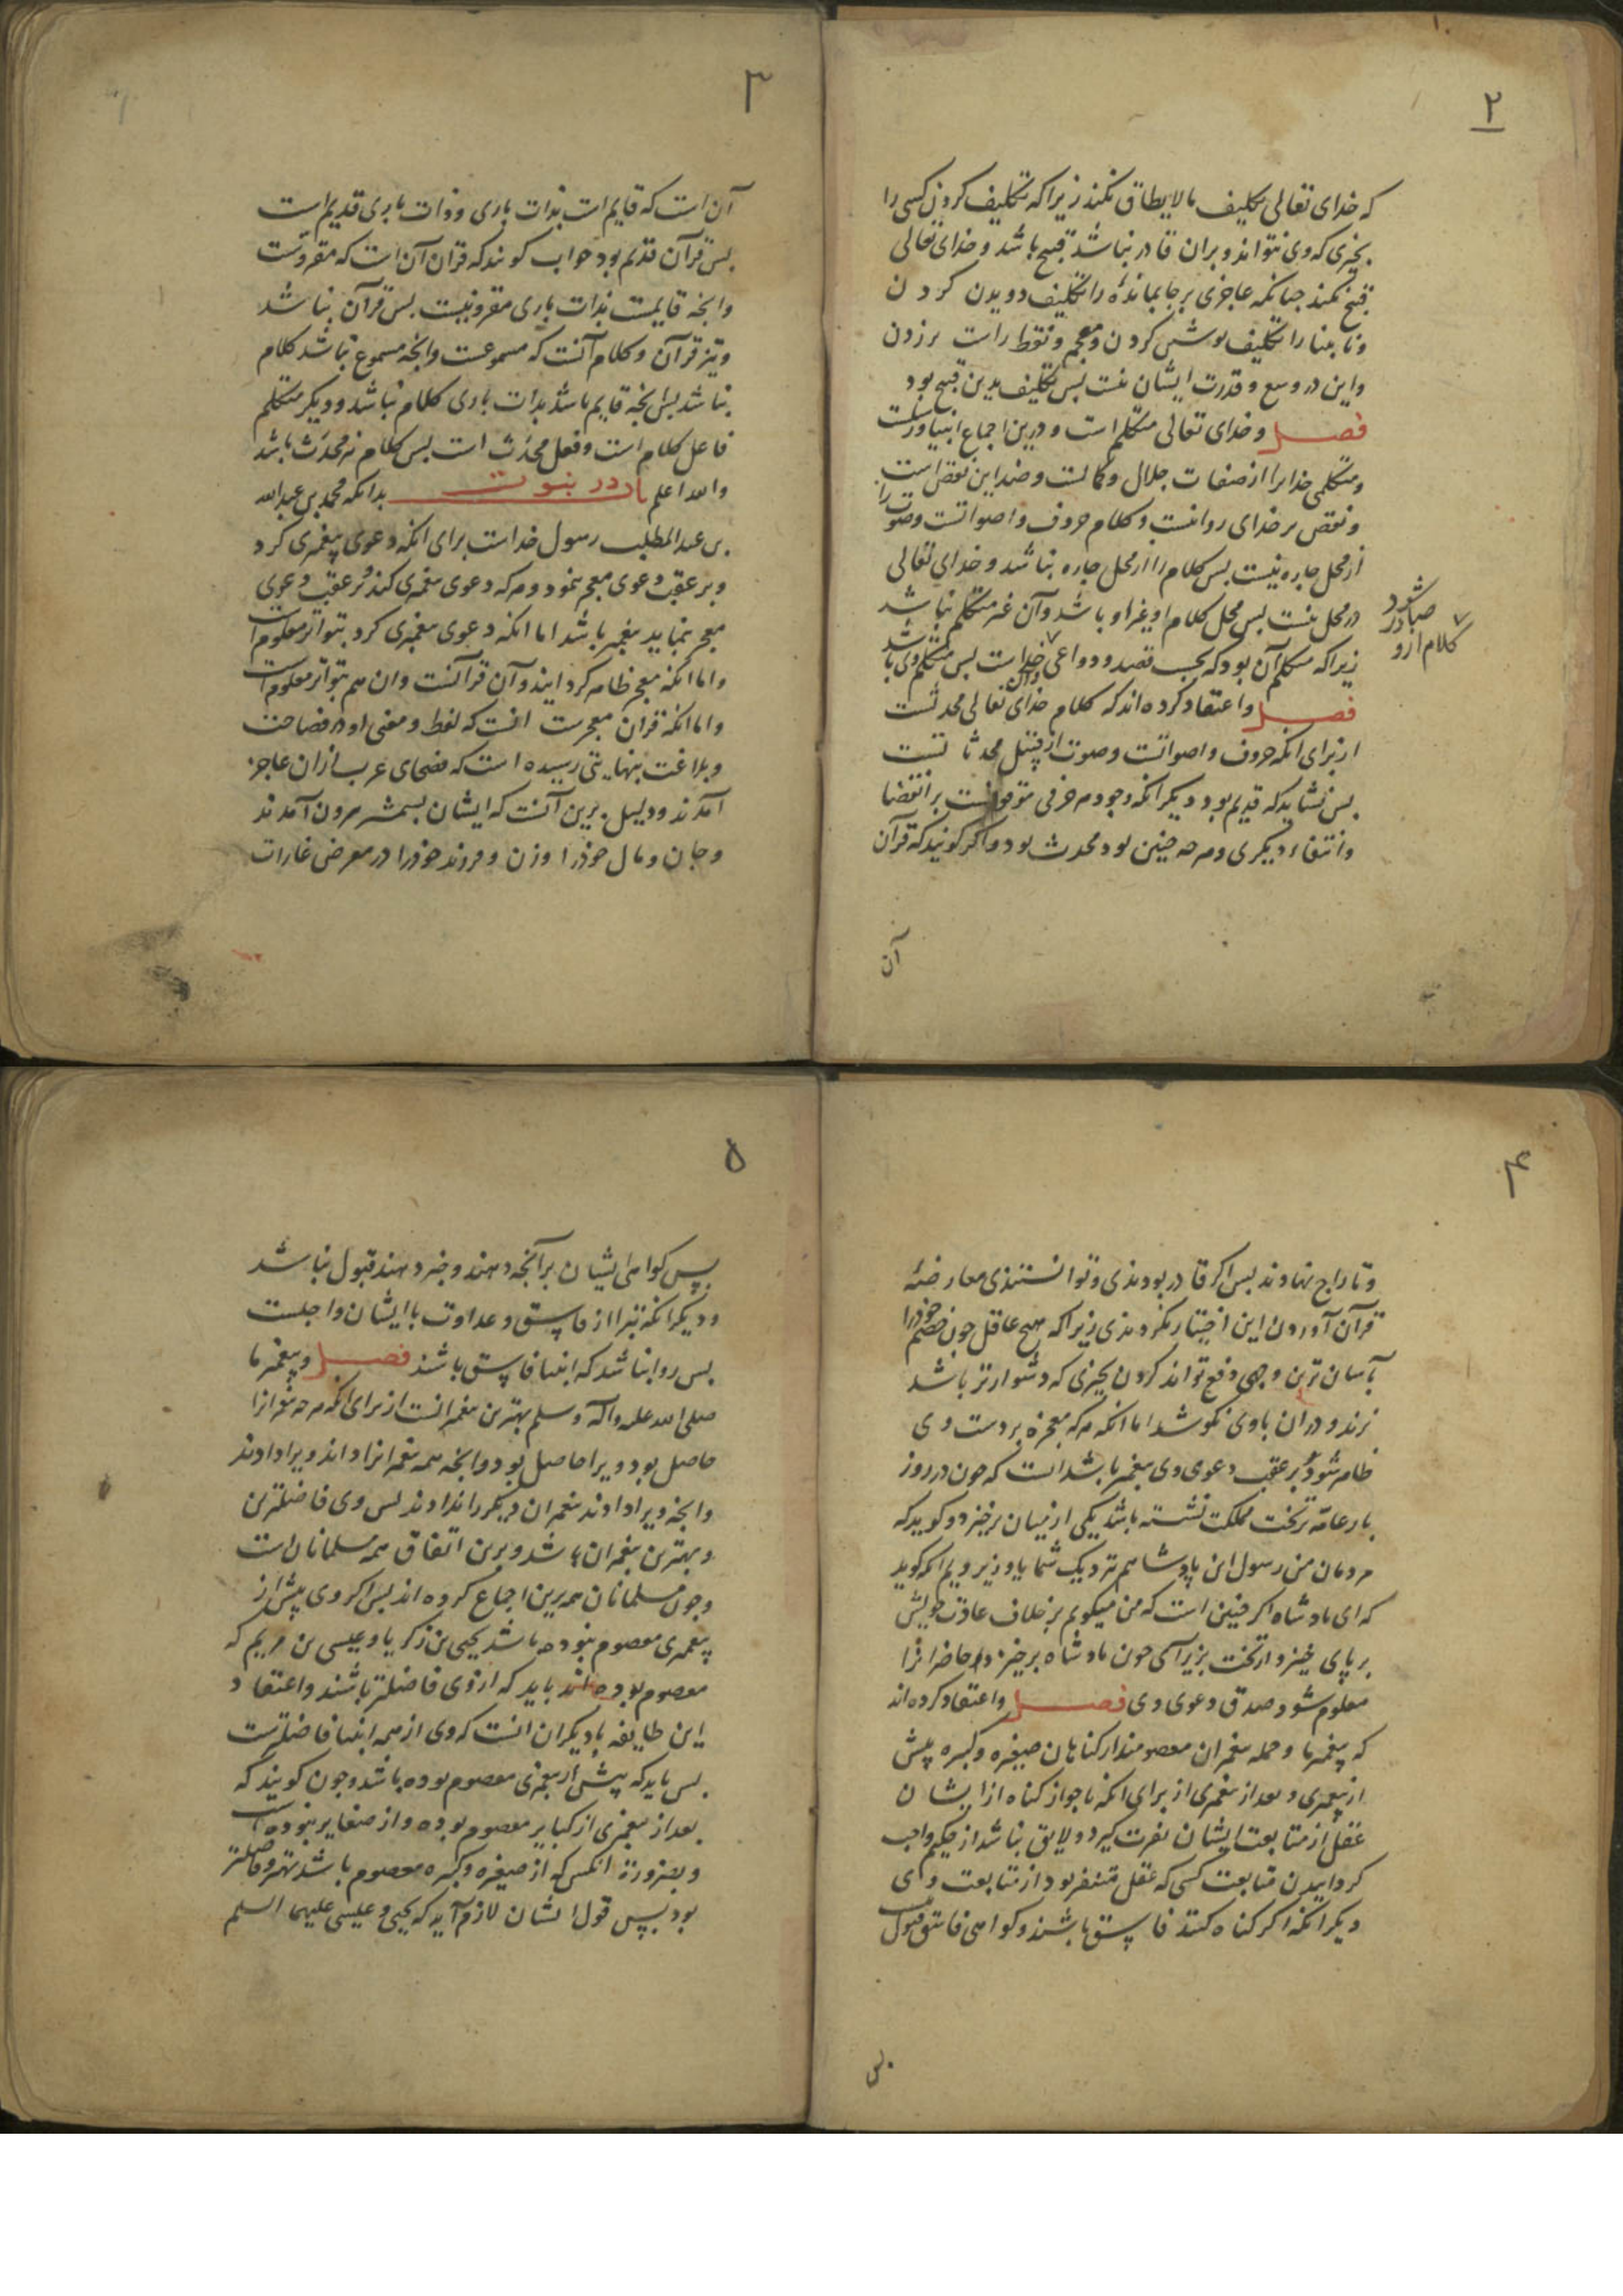 ۲
که خدای تعالی تکلیف مالایطاق نکند زیرا که تکلیف کردن کسی را
بچیزی که وی نتواند و بران قادر نباشد قبیح باشد و خدای تعالی
قبیح نکند جنانکه عاجزی برجابمانده را تکلیف دویدن کردن
ونابینا را تکلیف بوشش کردن و معجم و نقط راست برزدن
واین در وسع و قدرت ایشان نیست بس تکلیف بدین قبیح بود
فصل و خدای تعالی متکلم است و درین اجماع انبیا و رسلست
ومتکلمی خدایرا از صفات جلال و کمالست و ضد این نقص است
ونقص بر خدای روا نیست و کلام حروف و اصواتست و صوت را
از محل جاره نیست بس کلام را از محل جاره نباشد و خدای تعالی
در محل نیست بس محل کلام او غیر او باشد و آن غیر متکلم نباشد
زیرا که متکلم آن بود که بحسب قصد و دواعی خداست بس متکلم وی باشد
صادر شود
کلام ازو
فصل و اعتقاد کرده‌اند که کلام خدای تعالی محدثست
از برای انکه حروف و اصواتست و صوت از قبیل محدثاتست
بس نشاید که قدیم بود دیکر انکه وجود هر حرفی موقوفست بر انقضا
وانتفاء دیکری و هر چه جنین بود محدث بود و اکر کویند که قرآن
آن
۳
آن است که قایم است بذات باری و ذات باری قدیم است
بس قرآن قدیم بود جواب کویند که قران آن است که مقروست
وانجه قایمست بذات باری مقرو نیست بس قرآن نباشد
ونیز قرآن و کلام آنست که مسموعست وانجه مسموع نباشد کلام
نباشد بس انجه قایم باشد بذات باری کلام نباشد و دیکر متکلم
فاعل کلام است و فعل محدَث است بس کلام نیز محدَث باشد
والله اعلم باب در نبوت بدانکه محمد بن عبدالله
بن عبدالمطلب رسول خداست برای انکه دعوی پیغمبری کرد
وبر عقب دعوی معجز نمود و هر که دعوی پیغمبری کند و بر عقب دعوی
معجز بنماید پیغمبر باشد اما انکه دعوی پیغمبری کرد بتواتر معلوم است
واما انکه معجز ظاهر کردانید و آن قرآنست و ان هم بتواتر معلوم است
واما انکه قران معجزست انست که لفظ و معنی او در فصاحت
وبلاغت بنهایتی رسیده است که فصحای عرب از ان عاجز
آمدند و دلیل برین آنست که ایشان بشمشیر بیرون آمدند
وجان و مال خوذرا و زن و فرزند خوذرا در معرض غارات
۴
وتاراج نهادند بس اکر قادر بودندی و توانستندی معارضهٔ
قرآن آوردن این اختیار نکردندی زیرا که هیچ عاقل جون خصم خوذرا
بآسان ترین وجهی دفع تواند کردن بچیزی که دشوارتر باشد
نزند و در ان باوی نکوشد اما انکه هر که معجزه بر دست وی
ظاهر شود بر عقب دعوی وی پیغمبر باشد انست که جون در روز
بار عام بر تخت مملکت نشسته باشد یکی از میان برخیزد و کوید که
مردمان من رسول این پادشاهم نزدیک شما یا وزیر ویم انکه کوید
که ای پادشاه اکر جنین است که من میکویم بر خلاف عادت خویش
بر پای خیز و از تخت بزیر آی جون پادشاه برخیزد حاضرانرا
معلوم شود صدق دعوی وی فصل واعتقاد کرده‌اند
که پیغمبر ما و جمله پیغمبران معصومند از کناهان صغیره و کبیره پیش
از پیغمبری و بعد از پیغمبری از برای انکه با جواز کناه از ایشان
عقل از متابعت ایشان نفرت کیرد و لایق نباشد از حکیم واجب
کردانیدن متابعت کسی که عقل متنفر بود از متابعت وی
دیکر انکه اکر کناه کنند فاسق باشند و کواهی فاسق قبول نیست
بس
۵
پس کواهی ایشان بر آنجه دهند و خبر دهند قبول نباشد
ودیکر انکه تبرا از فاسق و عداوت با ایشان واجبست
بس روا نباشد که انبیا فاسق باشند فصل و پیغمبر ما
صلی الله علیه وآله وسلم بهترین پیغمبرانست از برای انکه هر چه پیغمبرانرا
حاصل بود ویرا حاصل بود وانجه همه پیغمبرانرا داده‌اند ویرا دادند
وانجه ویرا دادند پیغمبران دیکر را ندادند بس وی فاضلترین
وبهترین پیغمبران باشد و برین اتفاق همه مسلمانان است
وجون مسلمانان همه برین اجماع کرده‌اند بس اکر وی پیش از
پیغمبری معصوم نبوده باشد یحیی بن زکریا و عیسی بن مریم که
معصوم بوده‌اند باید که از وی فاضلتر باشند و اعتقاد
این طایفه با دیکران انست که وی از همه انبیا فاضلترست
بس باید که پیش از پیغمبری معصوم بوده باشد و جون کویند که
بعد از پیغمبری از کبایر معصوم بوده و از صغایر نبوده است
وبضرورت انکس که از صغیره و کبیره معصوم باشد بهتر و فاضلتر
بود بس قول ایشان لازم آید که یحیی و عیسی علیهما السلم